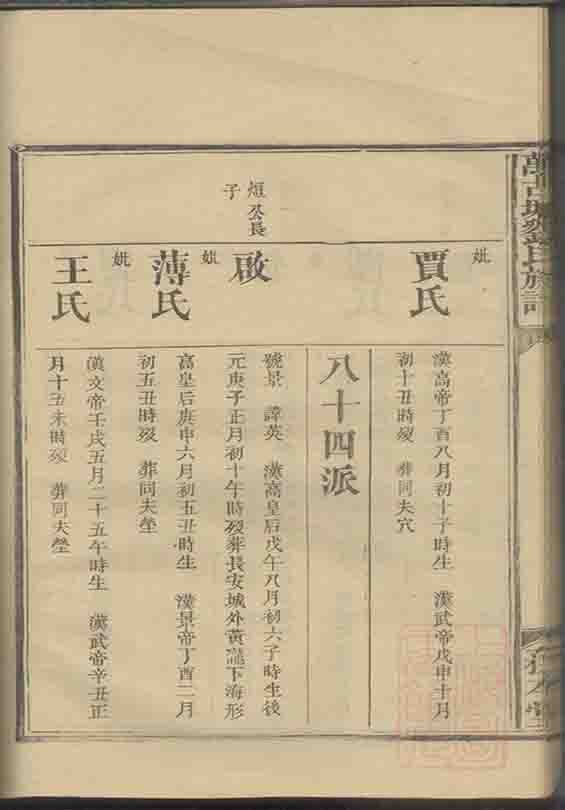 妣
賈氏
漢高帝丁酉八月初十子時生 漢武帝戊申十月
初十丑時歿 葬同夫穴
八十四派
烜公長
子
啟
號景 諱英 漢高皇后戊午八月初六子時生後
元庚子正月初十午時歿葬長安城外黃瀧下海形
妣
薄氏
高皇后庚申六月初五丑時生 漢景帝丁酉二月
初五丑時歿 葬同夫塋
妣
王氏
漢文帝壬戌五月二十五午時生 漢武帝辛丑正
月十五未時歿 葬同夫塋